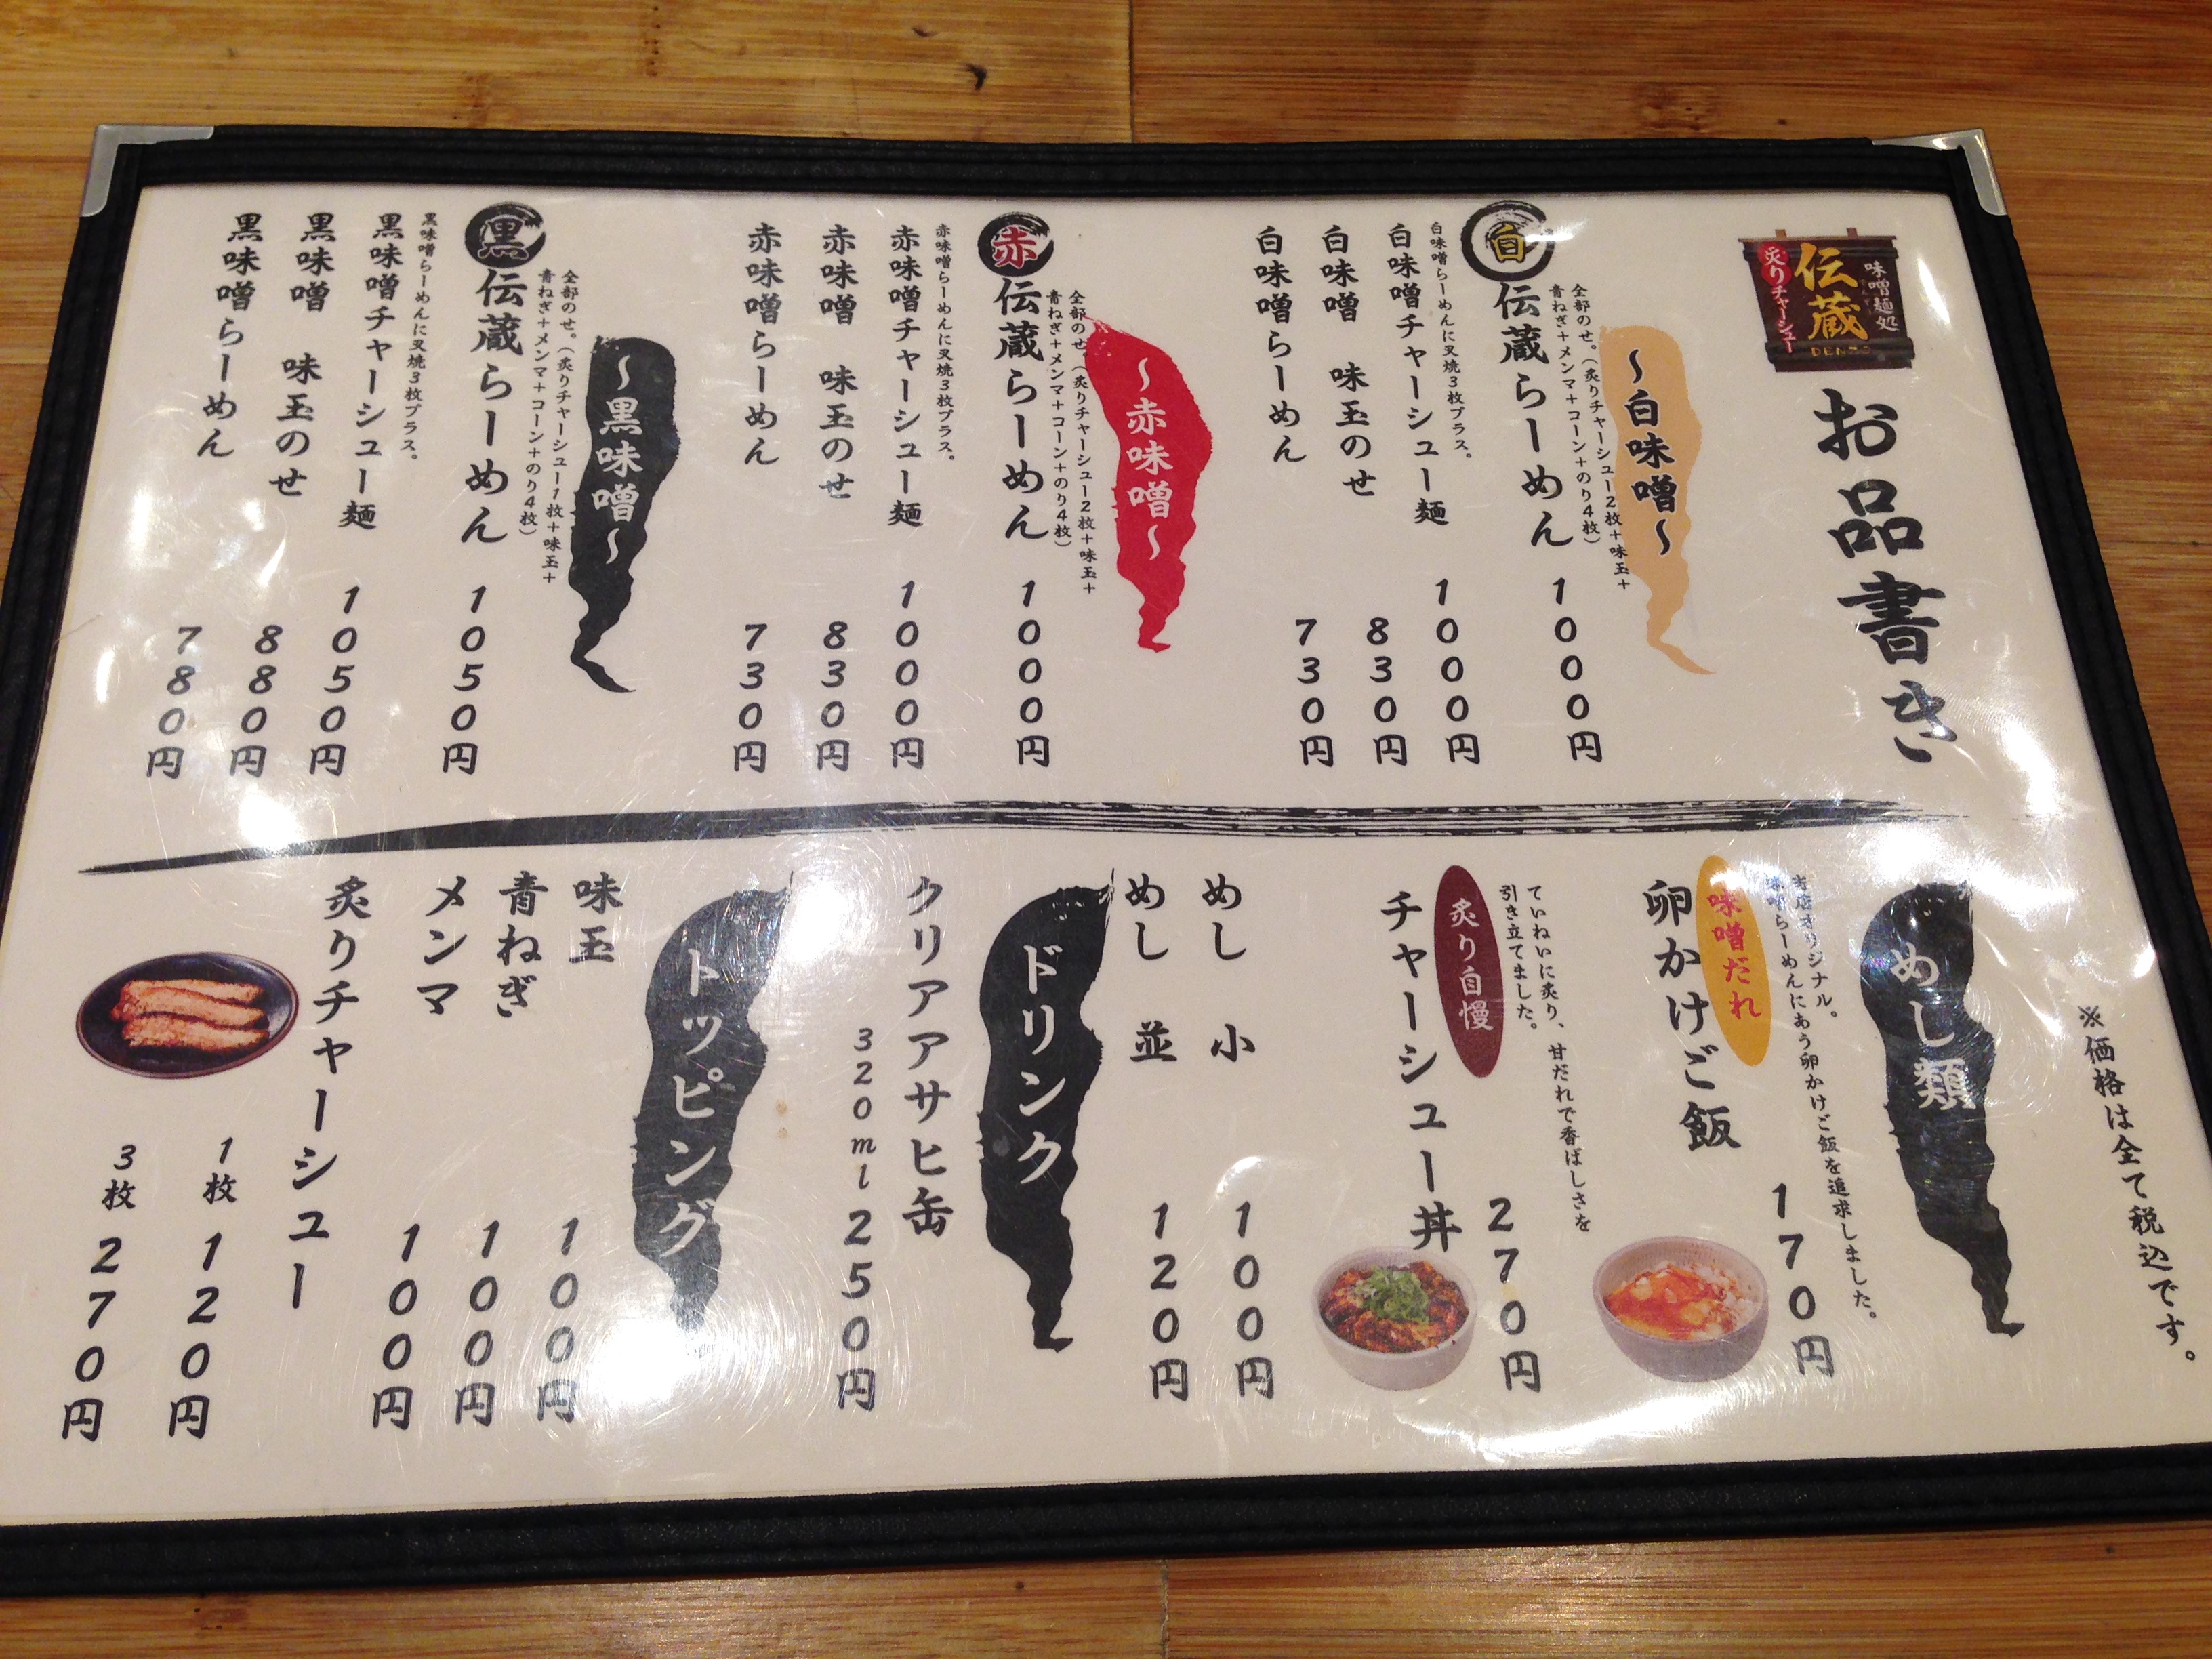 味噌麺処
伝蔵
DENZO
炙りチャーシュー
お品書き
〜白味噌〜
白 伝蔵らーめん 1000円
全部のせ。(炙りチャーシュー2枚+味玉+
青ねぎ+メンマ+コーン+のり4枚)
白味噌チャーシュー麺 1000円
白味噌らーめんに叉焼3枚プラス。
白味噌 味玉のせ 830円
白味噌らーめん 730円
〜赤味噌〜
赤 伝蔵らーめん 1000円
全部のせ。(炙りチャーシュー2枚+味玉+
青ねぎ+メンマ+コーン+のり4枚)
赤味噌チャーシュー麺 1000円
赤味噌らーめんに叉焼3枚プラス。
赤味噌 味玉のせ 830円
赤味噌らーめん 730円
〜黒味噌〜
黒 伝蔵らーめん 1050円
全部のせ。(炙りチャーシュー1枚+味玉+
青ねぎ+メンマ+コーン+のり4枚)
黒味噌チャーシュー麺 1050円
黒味噌らーめんに叉焼3枚プラス。
黒味噌 味玉のせ 880円
黒味噌らーめん 780円
※価格は全て税込です。
めし類
当店オリジナル。
味噌らーめんにあう卵かけご飯を追求しました。
味噌だれ
卵かけご飯 170円
ていねいに炙り、甘だれで香ばしさを
引き立てました。
炙り自慢
チャーシュー丼 270円
めし 小 100円
めし 並 120円
ドリンク
クリアアサヒ缶
320ml 250円
トッピング
味玉 100円
青ねぎ 100円
メンマ 100円
炙りチャーシュー
1枚 120円
3枚 270円